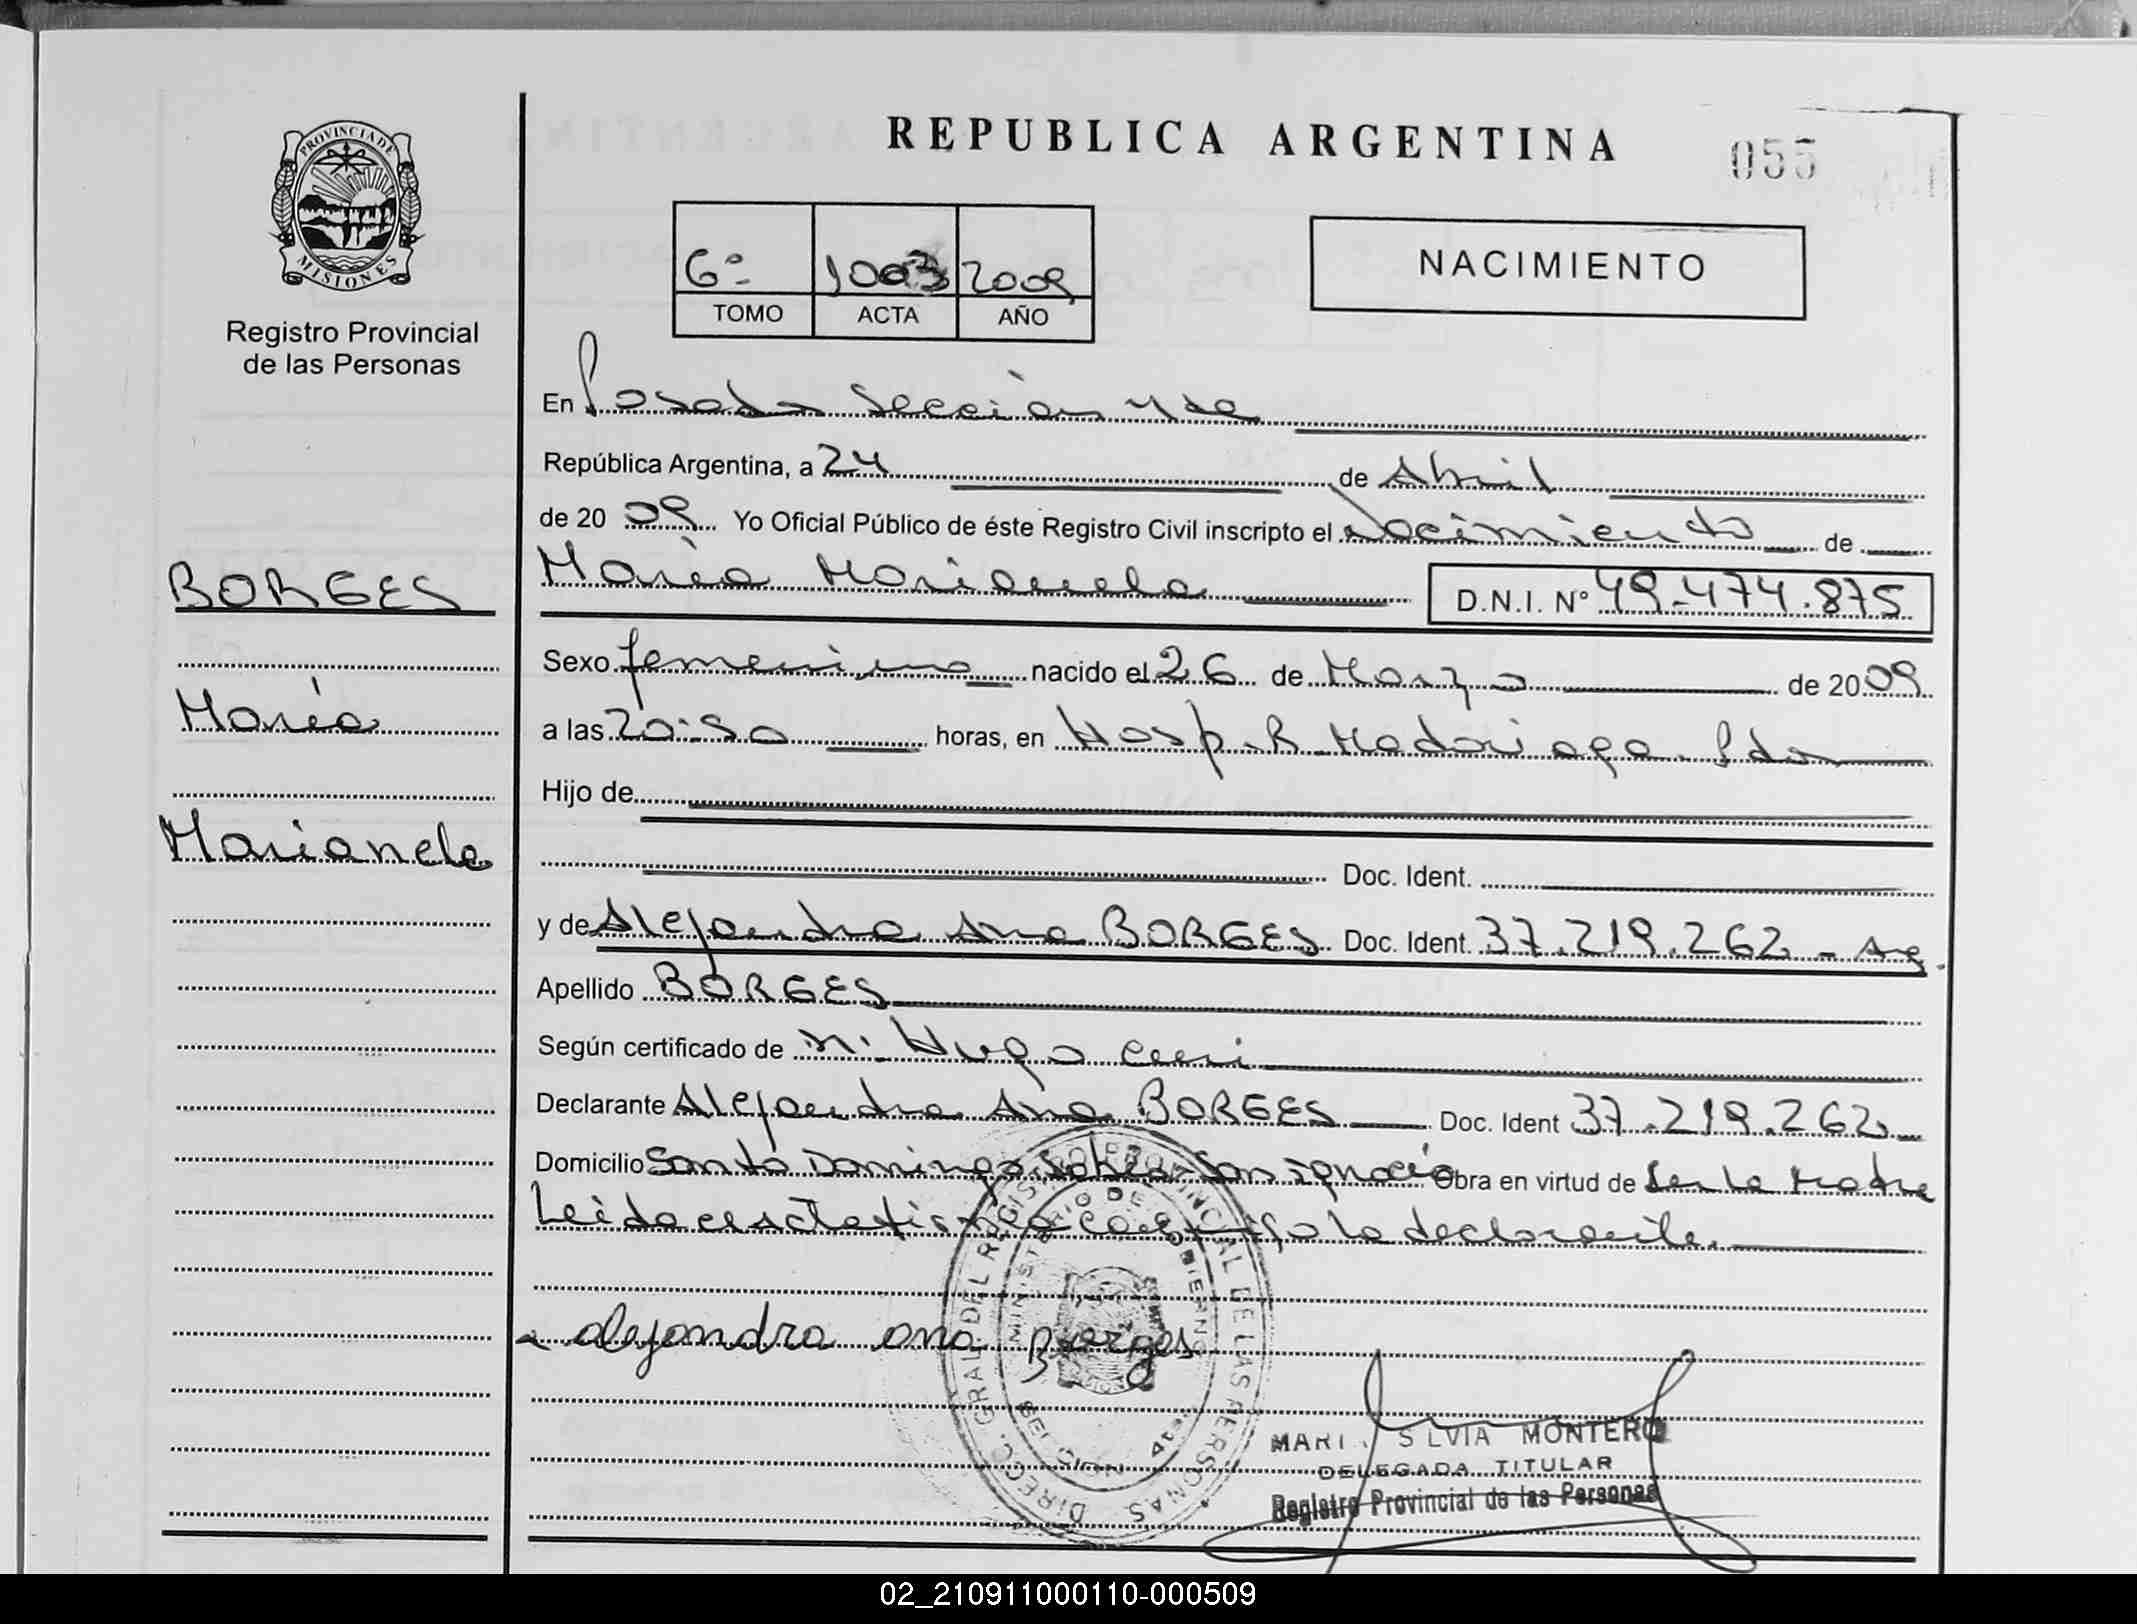 REPUBLICA ARGENTINA
055
PROVINCIA DE
MISIONES
Registro Provincial
de las Personas
6º 1003 2009
TOMO ACTA AÑO
NACIMIENTO
En Posadas Sección 4ta
República Argentina, a 24 de Abril
de 20 09 Yo Oficial Público de éste Registro Civil inscripto el Nacimiento de
María Marianela D.N.I. Nº 49.474.875
BORGES
María
Marianela
Sexo femenino nacido el 26 de Marzo de 20 09
a las 20:50 horas, en Hosp. R. Madariaga Pdas
Hijo de
Doc. Ident.
y de Alejandra Ana BORGES Doc. Ident. 37.219.262 - Arg.
Apellido BORGES
Según certificado de Hugo
Declarante Alejandra Ana BORGES Doc. Ident 37.219.262
Domicilio Santo Domingo Savio San Ignacio Obra en virtud de Ser la Madre
Leida esta acta firma conmigo la declarante.
alejandra ana Borges
DIRECC. GRAL. DEL REGISTRO PROVINCIAL DE LAS PERSONAS
MINISTERIO DE GOBIERNO
MARIA SILVIA MONTERO
DELEGADA TITULAR
Registro Provincial de las Personas
02_210911000110-000509